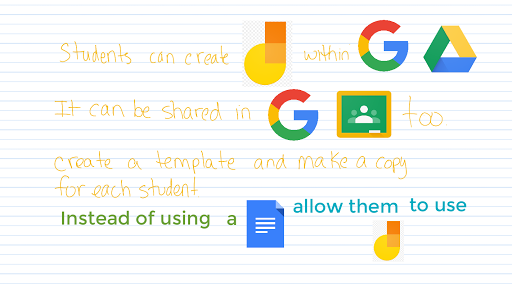 Students can create within
It can be shared in too
create a template and make a copy
for each student
Instead of using a allow them to use